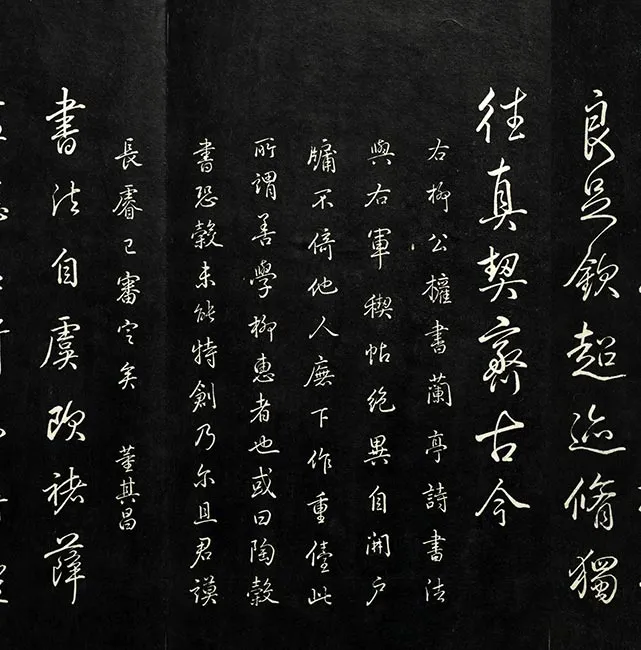 良足欽超迹脩獨
往真契齊古今
右柳公權書蘭亭詩書法
與右軍禊帖絶異自開户
牖不倚他人廡下作重儓此
所謂善學柳惠者也或曰陶縠
書恐縠未能特創乃尔且君謨
長睿已審定矣 董其昌
書法自虞歐褚薛